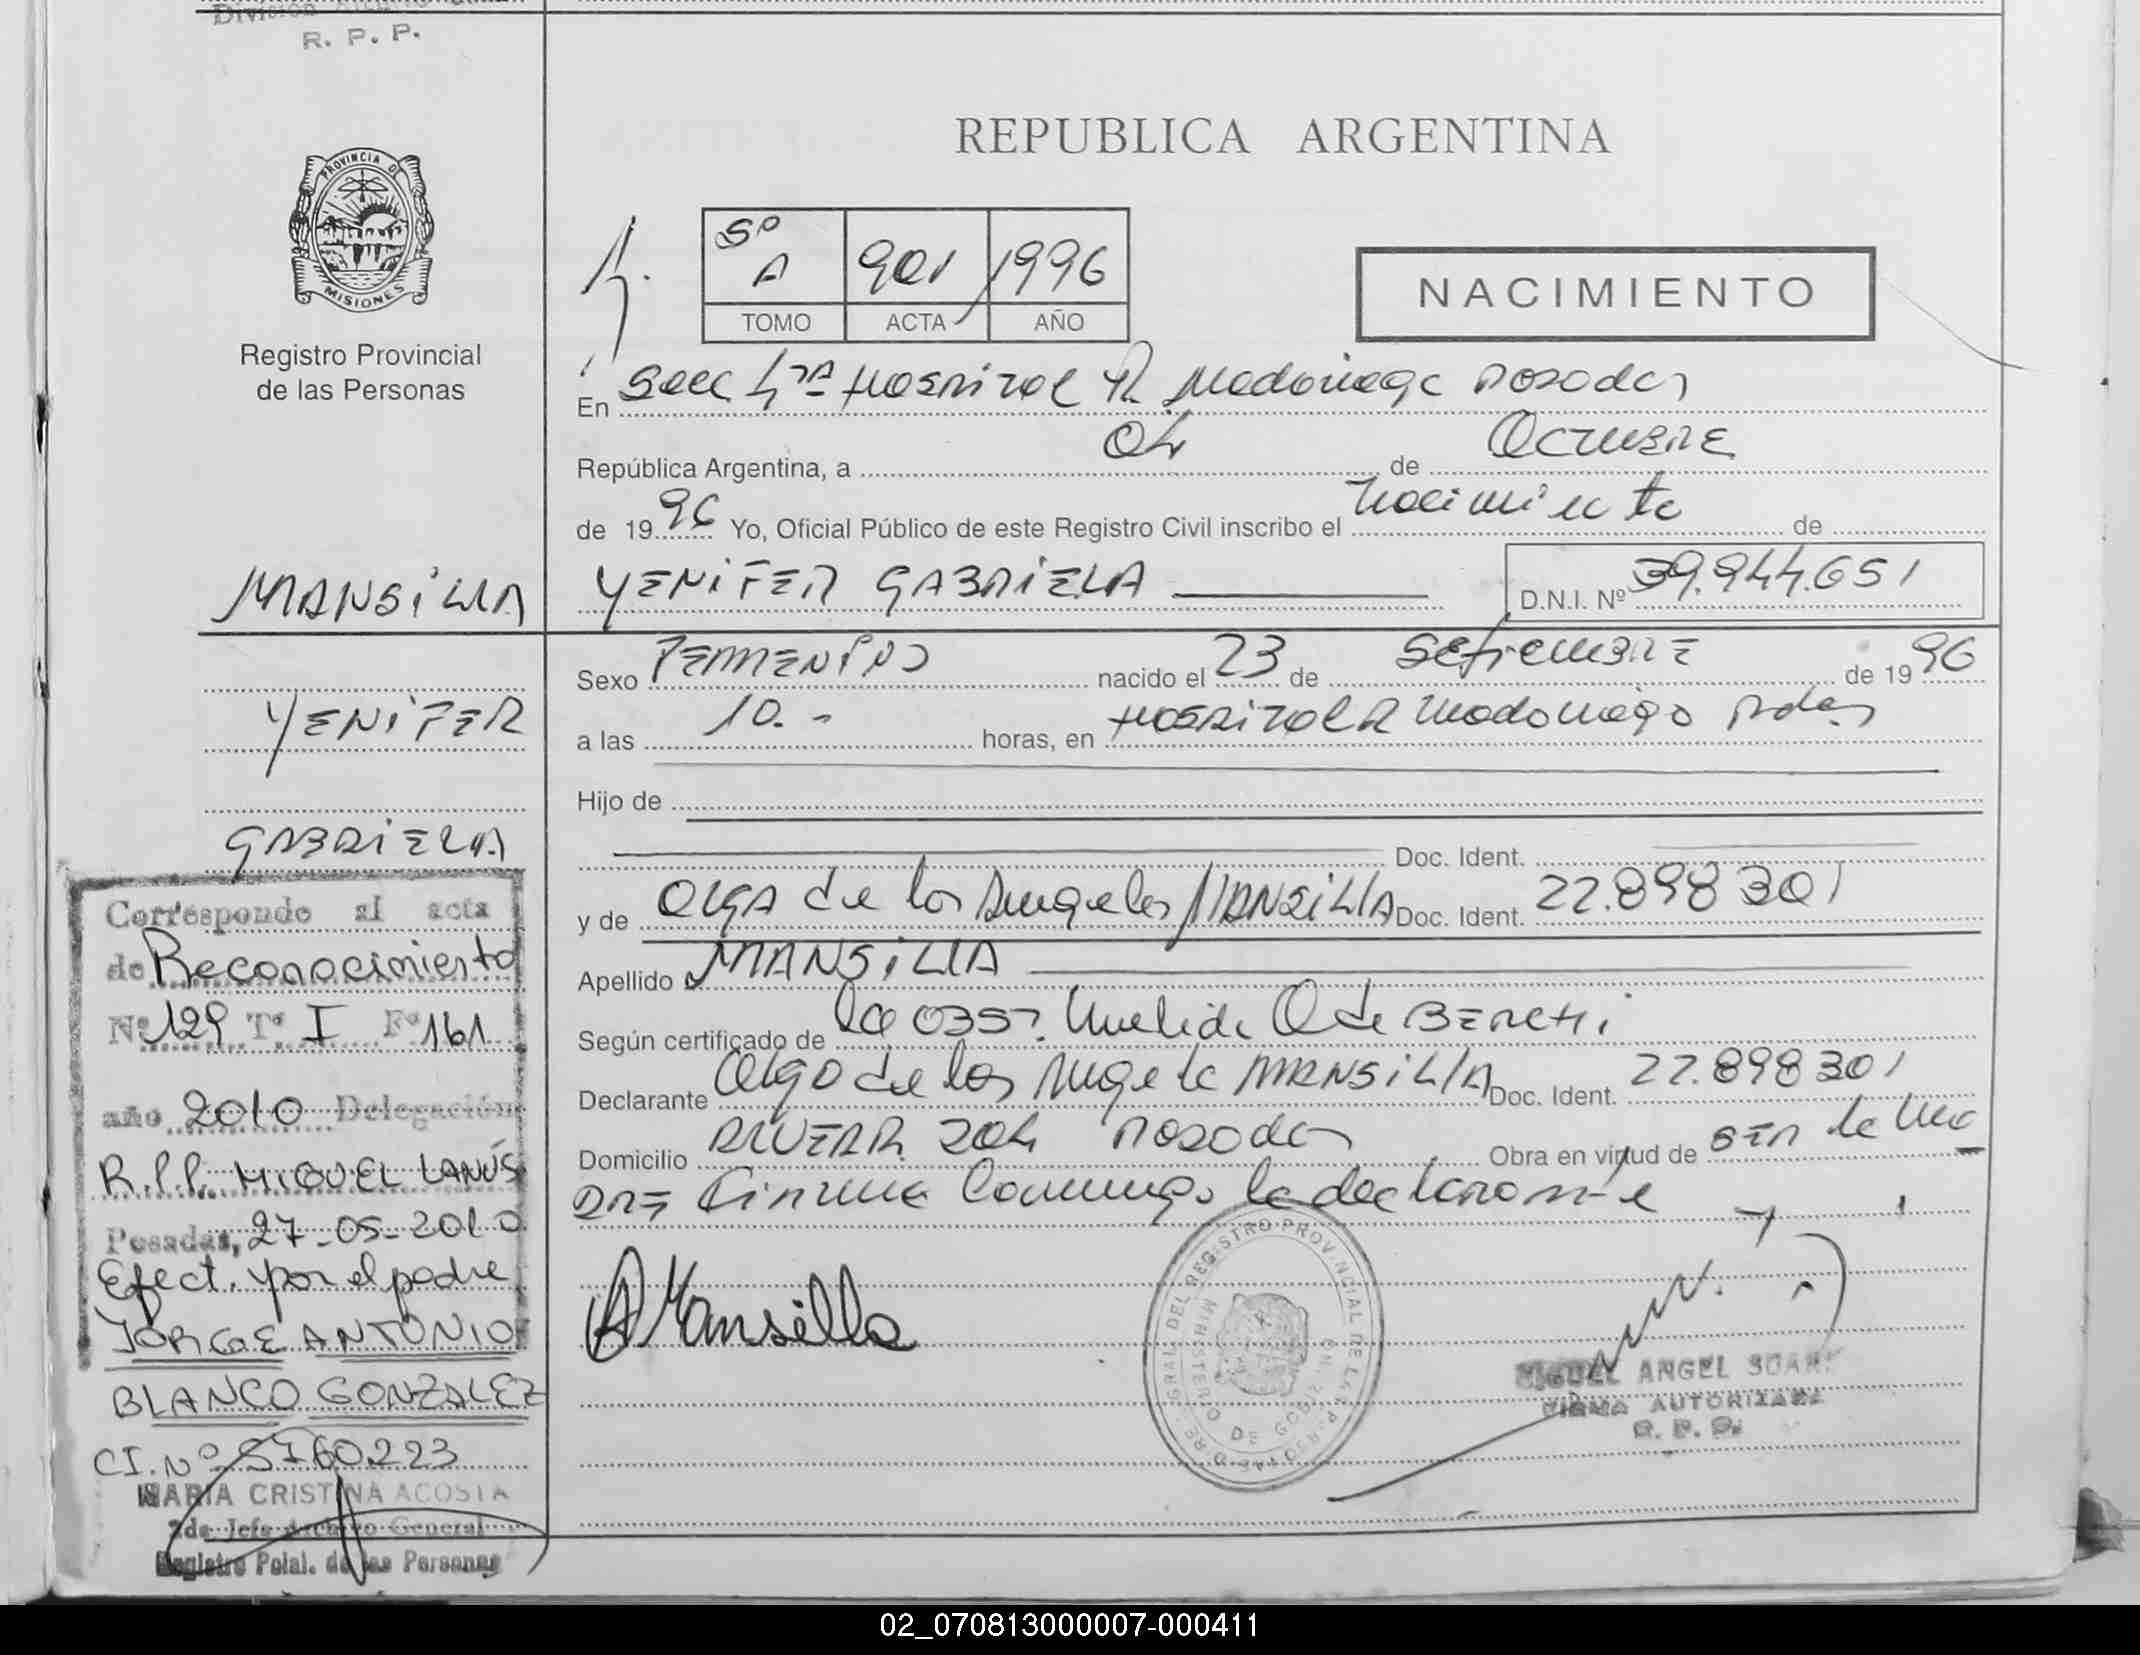 R. P. P.
PROVINCIA DE
MISIONES
Registro Provincial
de las Personas
MANSILLA
YENIFER
GABRIELA
Corresponde al acta
de Reconocimiento
Nº 129 Tº I Fº 161
año 2010 Delegación
R.P.P. MIGUEL LANÚS
Posadas, 27-05-2010
Efect. por el padre
JORGE ANTONIO
BLANCO GONZALEZ
CI. Nº 5760223
MARIA CRISTINA ACOSTA
2da. Jefa Archivo General
Registro Pcial. de las Personas
REPUBLICA ARGENTINA
Sº A 901 1996
TOMO ACTA AÑO
NACIMIENTO
En Secc 4ta Hospital R Madariaga Posadas
República Argentina, a 04 de Octubre
de 1996 Yo, Oficial Público de este Registro Civil inscribo el Nacimiento de
YENIFER GABRIELA D.N.I. Nº 39.944.651
Sexo FEMENINO nacido el 23 de Setiembre de 1996
a las 10.- horas, en Hospital R Madariaga Pdas
Hijo de
Doc. Ident.
y de OLGA de los Angeles MANSILLA Doc. Ident. 22.898301
Apellido MANSILLA
Según certificado de la Obst.
Declarante Olga de los Angeles MANSILLA Doc. Ident. 22.898301
Domicilio 204 Posadas Obra en virtud de ser la Ma
dre Firma Conmigo la declarante
A Mansilla
MIGUEL ANGEL
FIRMA AUTORIZADA
R. P. P.
02_070813000007-000411